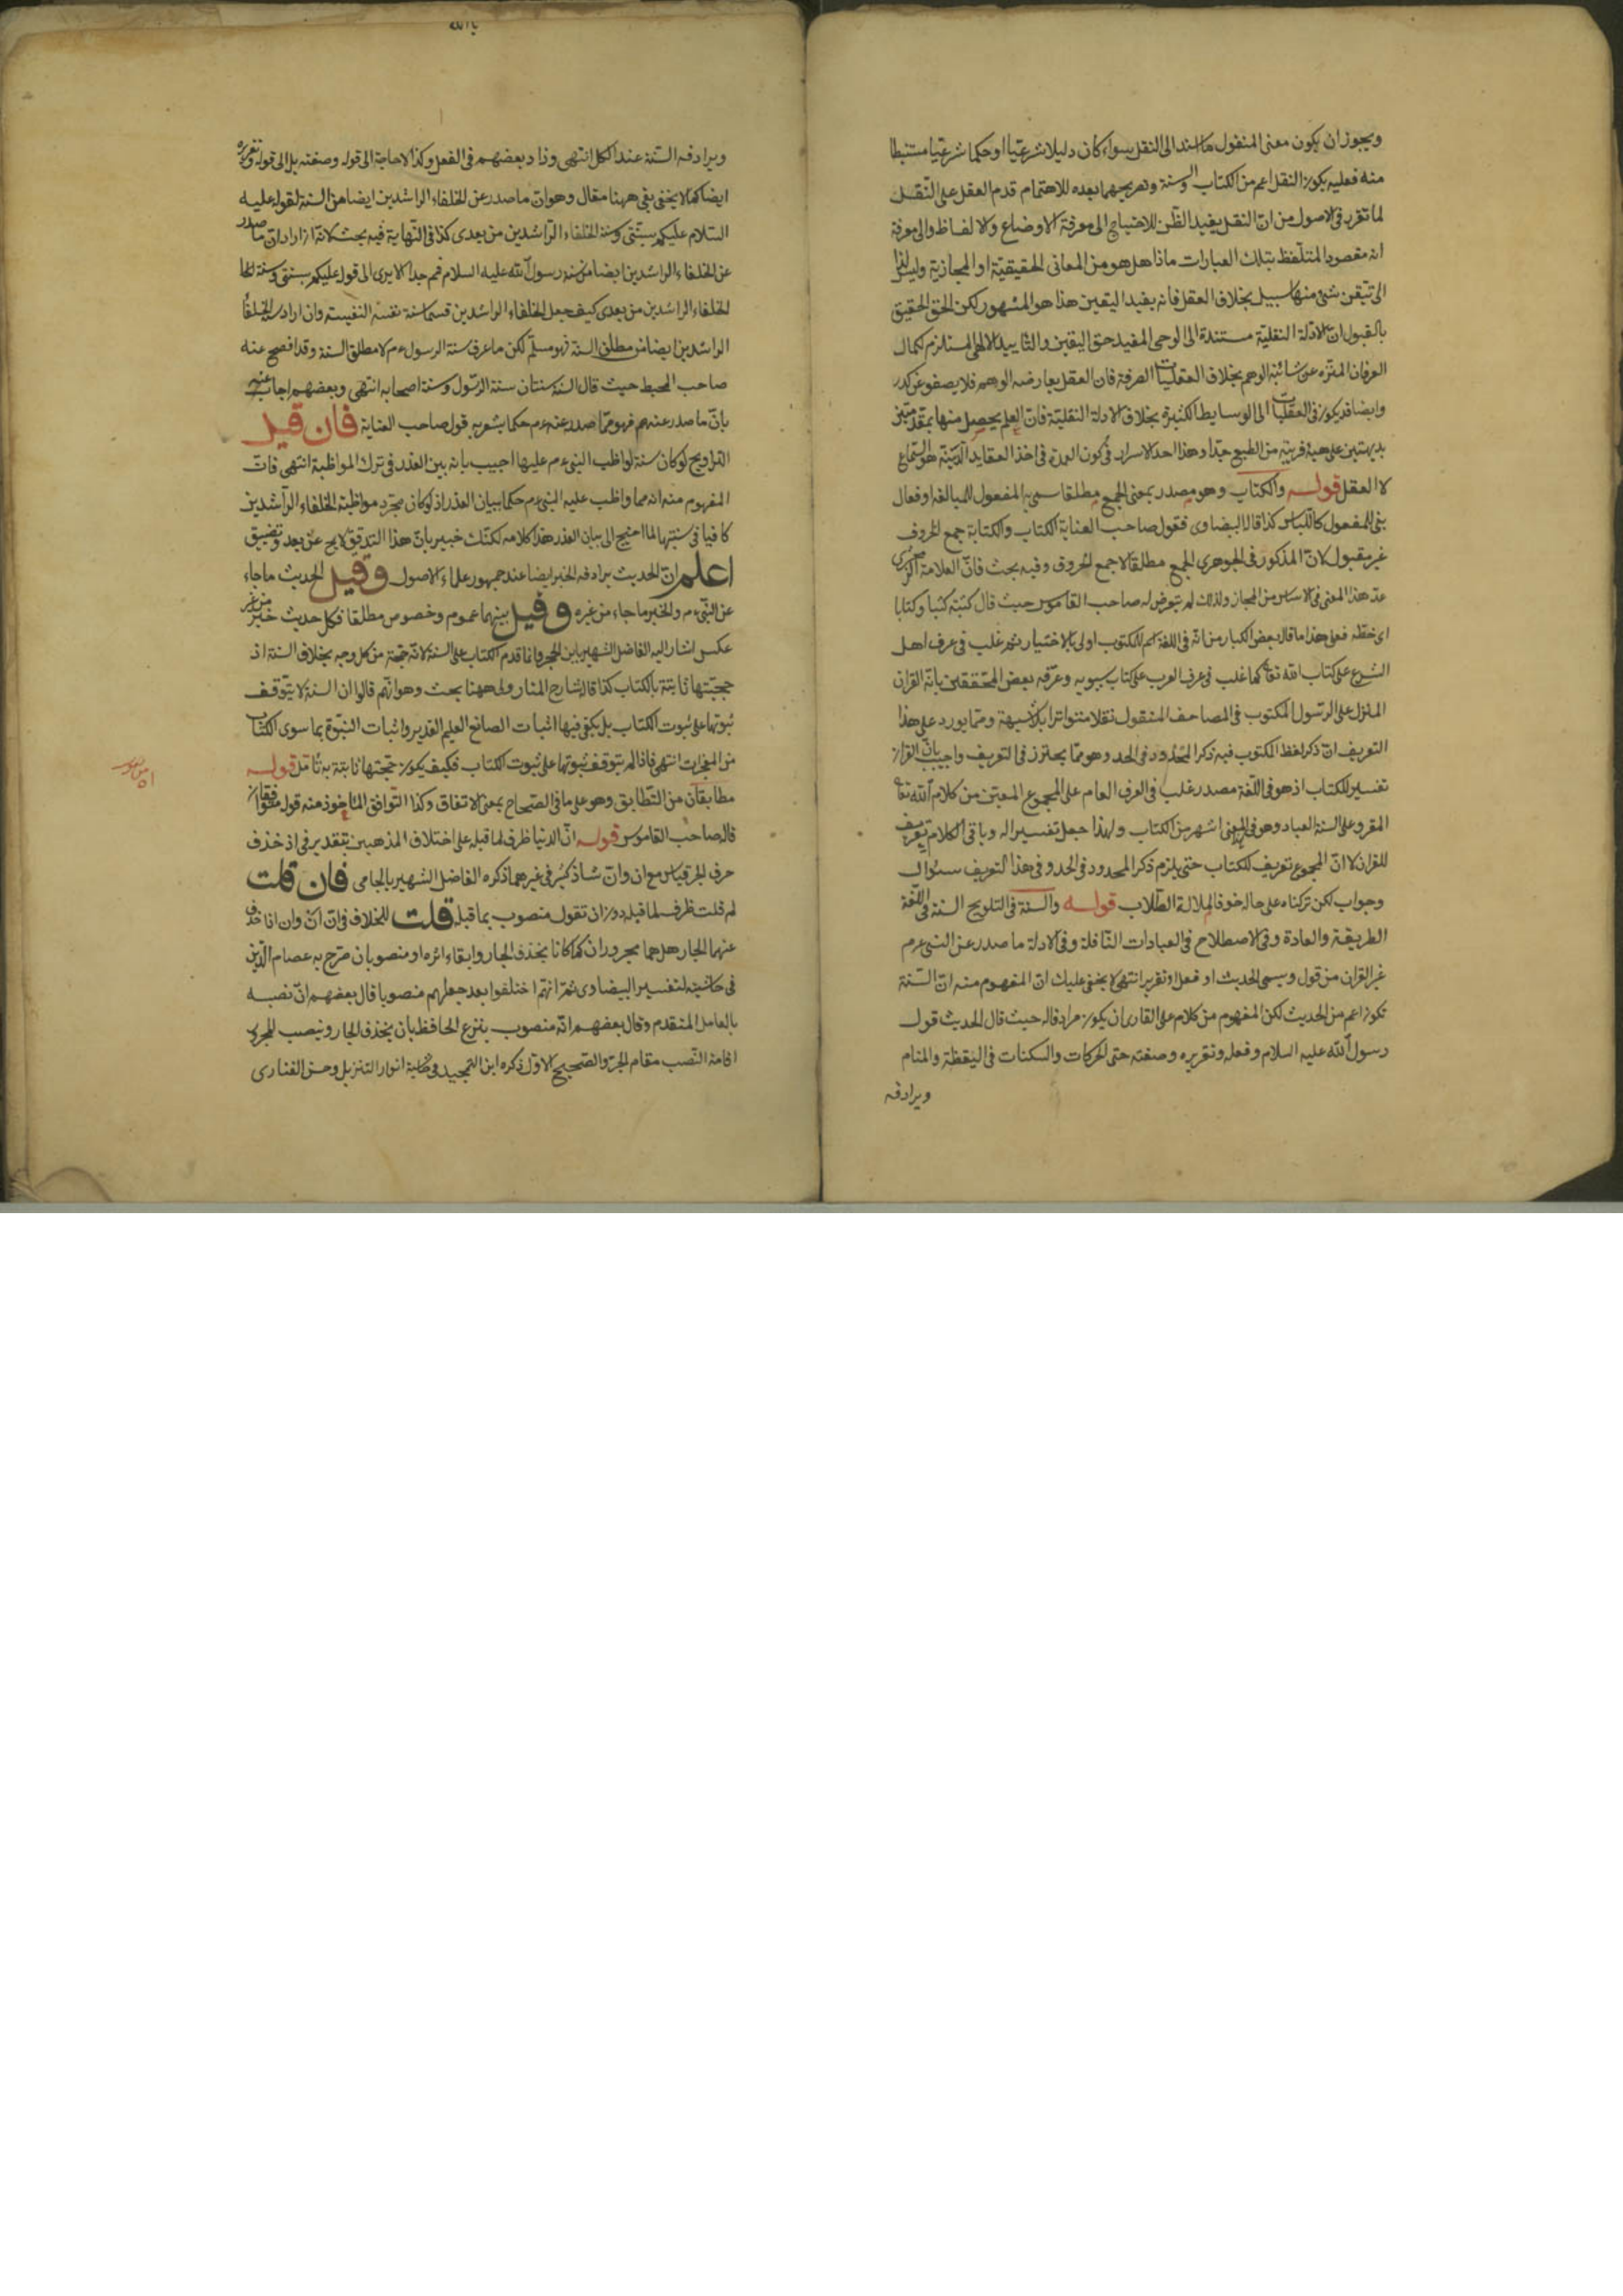 ويجوز ان يكون معنى المنقول ما اسند الى النقل سواء كان دليلا شرعيا او حكما شرعيا مستنبطا
منه فعليه يكون النقل اعم من الكتاب والسنة وتصريحهما بعده للاهتمام قدم العقل على النقل
لما تقرر فى الاصول من ان النقل يفيد الظن للاحتياج الى معرفة الاوضاع والالفاظ والى معرفة
انه مقصود المتلفظ بتلك العبارات ماذا هل هو من المعانى الحقيقية او المجازية وليس لنا
الى تيقن شئ منها سبيل بخلاف العقل فانه يفيد اليقين هذا هو المشهور لكن الحق الحقيق
بالقبول ان الادلة النقلية مستندة الى الوحى المفيد حق اليقين والتاييد الالهى المستلزم لكمال
العرفان المنزه عن شائبة الوهم بخلاف العقليات الصرفة فان العقل يعارضه الوهم فلا يصفو عن كدر
وايضا قد يكون فى العقليات الى الوسايط الكثيرة بخلاف الادلة النقلية فان العلم يحصل منها بمقدمتين
بديهتين على هيئة قريبة من الطبع جدا وهذا احد الاسرار فى كون العمدة فى اخذ العقايد الدينية هو السماع
لا العقل قوله والكتاب وهو مصدر بمعنى الجمع مطلقا سمى به المفعول للمبالغة او فعال
بنى للمفعول كاللباس كذا قال البيضاوى فقول صاحب العناية الكتاب والكتابة جمع الحروف
غير مقبول لان المذكور فى الجوهرى الجمع مطلقا لا جمع الحروف وفيه بحث فان العلامة الزمخشرى
عد هذا المعنى فى الاساس من المجاز ولذلك لم يتعرض له صاحب القاموس حيث قال كتبه كتبا وكتابا
اى خطه فعلى هذا ما قال بعض الكبار من انه فى اللغة اسم للمكتوب اولى بالاختيار ثم غلب فى عرف اهل
الشرع على كتاب الله تعا كما غلب فى عرف العرب على كتاب سيبويه وعرفه بعض المحققين بانه القران
المنزل على الرسول المكتوب فى المصاحف المنقول نقلا متواترا بلا شبهة ومما يورد على هذا
التعريف ان ذكر لفظ المكتوب فيه ذكر المحدود فى الحد وهو مما يحترز فى التعريف واجيب بان القران
تفسير للكتاب اذ هو فى اللغة مصدر غلب فى العرف العام على المجموع المعين من كلام الله تعا
المقرو على السنة العباد وهو فى المعنى اشهر من الكتاب ولهذا جعل تفسيرا له وباقى الكلام تعريف
للقران لا ان المجموع تعريف للكتاب حتى يلزم ذكر المحدود فى الحد وفى هذا التعريف سئوال
وجواب لكن تركناه على حاله خوفا لملالة الطلاب قوله والسنة فى التلويح السنة فى اللغة
الطريقة والعادة وفى الاصطلاح فى العبادات النافلة وفى الادلة ما صدر عن النبى عم
غير القران من قول ويسمى الحديث او فعل او تقرير انتهى لا يخفى عليك ان المفهوم منه ان السنة
تكون اعم من الحديث لكن المفهوم من كلام على القارى ان يكون مرادفا له حيث قال الحديث قول
رسول الله عليه السلام وفعله وتقريره وصفته حتى الحركات والسكنات فى اليقظة والمنام
ويرادفه
يا الله
ويرادفه السنة عند الكل انتهى وزاد بعضهم فى الفعل وكذا لا حاجة الى قوله وصفته بل الى قوله وتقريره
ايضا كما لا يخفى بقى ههنا مقال وهو ان ما صدر عن الخلفاء الراشدين ايضا من السنة لقوله عليه
السلام عليكم بسنتى وسنة الخلفاء الراشدين من بعدى كذا فى النهاية فيه بحث لانه ان اراد ان ما صدر
عن الخلفاء الراشدين ايضا من سنة رسول الله عليه السلام فمم جدا الا يرى الى قوله عليكم بسنتى وسنة
الخلفاء الراشدين من بعدى كيف جعل الخلفاء الراشدين قسما سنة نفسه النفيسة وان اراد سنة الخلفاء
الراشدين ايضا من مطلق السنة فهو مسلم لكن ما عرف سنة الرسول عم لا مطلق السنة وقد افصح عنه
صاحب المحيط حيث قال السنة سنتان سنة الرسول وسنة اصحابه انتهى وبعضهم اجاب عنه
بان ما صدر عنهم فهو مما صدر عنه عم حكما يشعر به قول صاحب العناية فان قيل
التراويح لو كان سنة لواظب النبى عم عليها اجيب بانه بين العذر فى ترك المواظبة انتهى فان
المفهوم منه انه مما واظب عليه النبى عم حكما ببيان العذر اذ لو كان مجرد مواظبة الخلفاء الراشدين
كافيا فى سنيتها لما احتيج الى بيان العذر هذا كلامه لكنك خبير بان هذا التدقيق لا يخ عن بعد وتضييق
اعلم ان الحديث يرادفه الخبر ايضا عند جمهور علماء الاصول وقيل الحديث ما جاء
عن النبى عم والخبر ما جاء من غيره وقيل بينهما عموم وخصوص مطلقا فكل حديث خبر من غير
عكس اشار اليه الفاضل الشهير بابن الحجر وانما قدم الكتاب على السنة لانه حجة من كل وجه بخلاف السنة اذ
حجيتها ثابتة بالكتاب كذا قال شارح المنار ولى ههنا بحث وهو انهم قالوا ان السنة لا يتوقف
ثبوتها على ثبوت الكتاب بل يكفى فيها اثبات الصانع العليم القدير واثبات النبوة بما سوى الكتاب
من المعجزات انتهى فاذا لم يتوقف ثبوتها على ثبوت الكتاب فكيف يكون حجتها ثابتة به تأمل قوله
مطابقان من التطابق وهو على ما فى الصحاح بمعنى الاتفاق وكذا التوافق المأخوذ منه قوله متوافقان
قاله صاحب القاموس قوله ان الدنيا ظرف لما قبله على اختلاف المذهبين بتقدير فى اذ حذف
حرف الجر قياس مع ان وان شاذ كثير فى غيرهما ذكره الفاضل الشهير بالجامى فان قلت
لم قلت ظرف لما قبله دون ان تقول منصوب بما قبله قلت للخلاف فى ان ان وان اذا حذف
عنهما الجار هل هما مجروران كما كانا بحذف الجار وابقاء اثره او منصوبان صرح به عصام الدين
فى حاشيته لتفسير البيضاوى ثم انهم اختلفوا بعد جعلهم منصوبا قال بعضهم ان نصبه
بالعامل المتقدم وقال بعضهم انه منصوب بنزع الخافظ بان يحذف الجار وينصب المجرور
اقامة النصب مقام الجر والصحيح الاول ذكره ابن التمجيد فى حاشية انوار التنزيل وحسن الفنارى